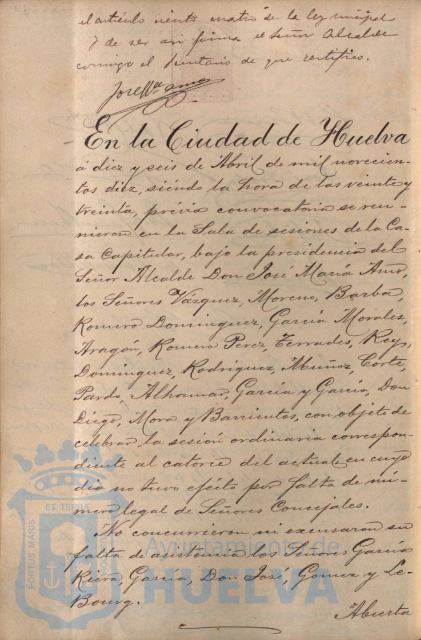 el artículo ciento cuatro de la ley municipal
y de ser así firma el Señor Alcalde
conmigo el Secretario de que certifico.
José Mª Amo
En la Ciudad de Huelva
á diez y seis de Abril de mil novecien-
tos diez, siendo la hora de las veinte y
treinta, prévia convocatoria se reu-
nieron en la Sala de sesiones de la Ca-
sa Capitular, bajo la presidencia del
Señor Alcalde Don José Maria Amo,
los Señores Vazquez, Moreno, Barba,
Romero Dominguez, Garcia Morales,
Aragón, Romero Perez, Terrades, Rey,
Dominguez, Rodriguez, Muñoz, Corte,
Pardo, Alhamar, Garcia y Garcia, Don
Diego, Mora y Barrientos, con objeto de
celebrar la sesión ordinaria correspon-
diente al catorce del actual en cuyo
dia no tuvo efecto por falta de nú-
mero legal de Señores Concejales.
No concurrieron ni excusaron su
falta de asistencia los Señores Garcia
Garcia, Don José, Gomez y Le-
Bourg.
Abierta
PORTUS MARIS
ET TERRAE
Ayuntamiento de
HUELVA